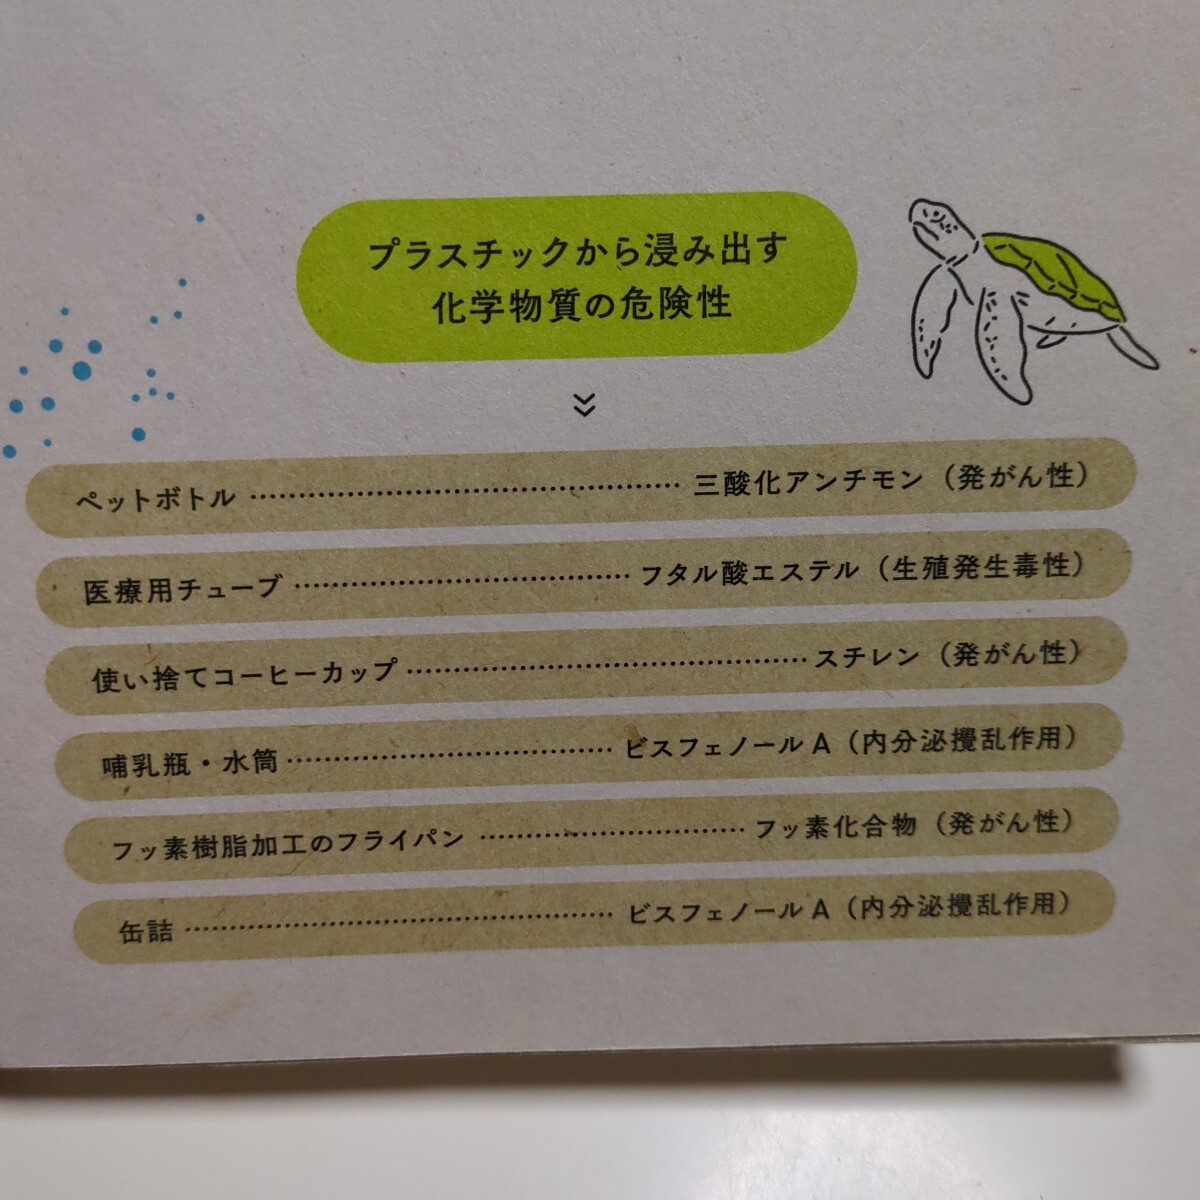 プラスチックから浸み出す
化学物質の危険性
ペットボトル……………………………………………三酸化アンチモン（発がん性）
医療用チューブ…………………………………フタル酸エステル（生殖発生毒性）
使い捨てコーヒーカップ………………………………………スチレン（発がん性）
哺乳瓶・水筒…………………………………ビスフェノールA（内分泌攪乱作用）
フッ素樹脂加工のフライパン…………………………フッ素化合物（発がん性）
缶詰……………………………………………ビスフェノールA（内分泌攪乱作用）